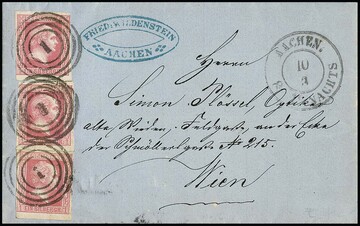 FRIED. WILDENSTEIN
AACHEN
AACHEN.
10
3
NACHTS
Herrn
Simon Plössel, Optiker
alte Wieden, Feldgasse, an der Ecke
der Schmöllerlgasse No 215.
Wien
1
1
1